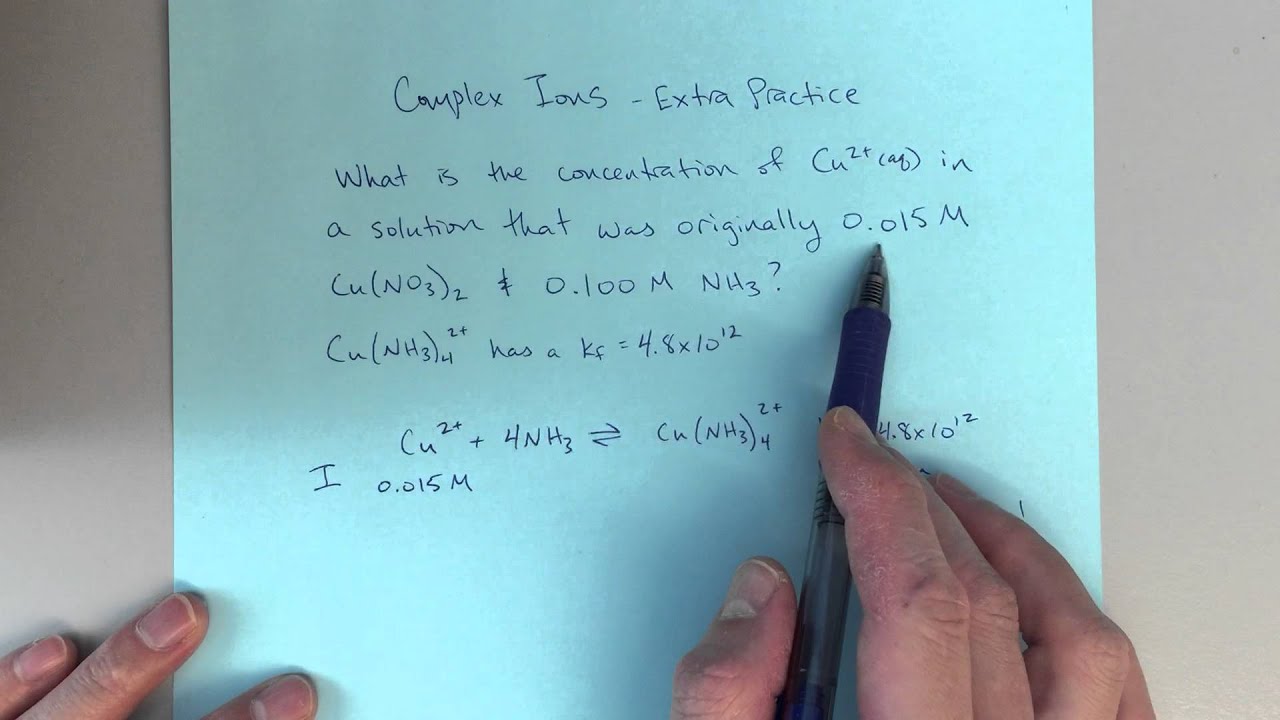 Complex Ions - Extra Practice
What is the concentration of Cu²⁺(aq) in
a solution that was originally 0.015 M
Cu(NO3)2 & 0.100 M NH3?
Cu(NH3)4²⁺ has a Kf = 4.8x10¹²
Cu²⁺ + 4NH3 ⇌ Cu(NH3)4²⁺ 4.8x10¹²
I 0.015 M